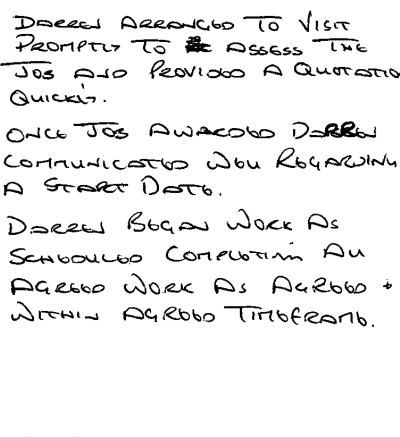 DARREN ARRANGED TO VISIT
PROMPTLY TO ASSESS THE
JOB AND PROVIDED A QUOTATIO
QUICKLY.
ONCE JOB AWARDED DARREN
COMMUNICATED WELL REGARDING
A START DATE.
DARREN BEGAN WORK AS
SCHEDULED COMPLETING ALL
AGREED WORK AS AGREED +
WITHIN AGREED TIMEFRAME.